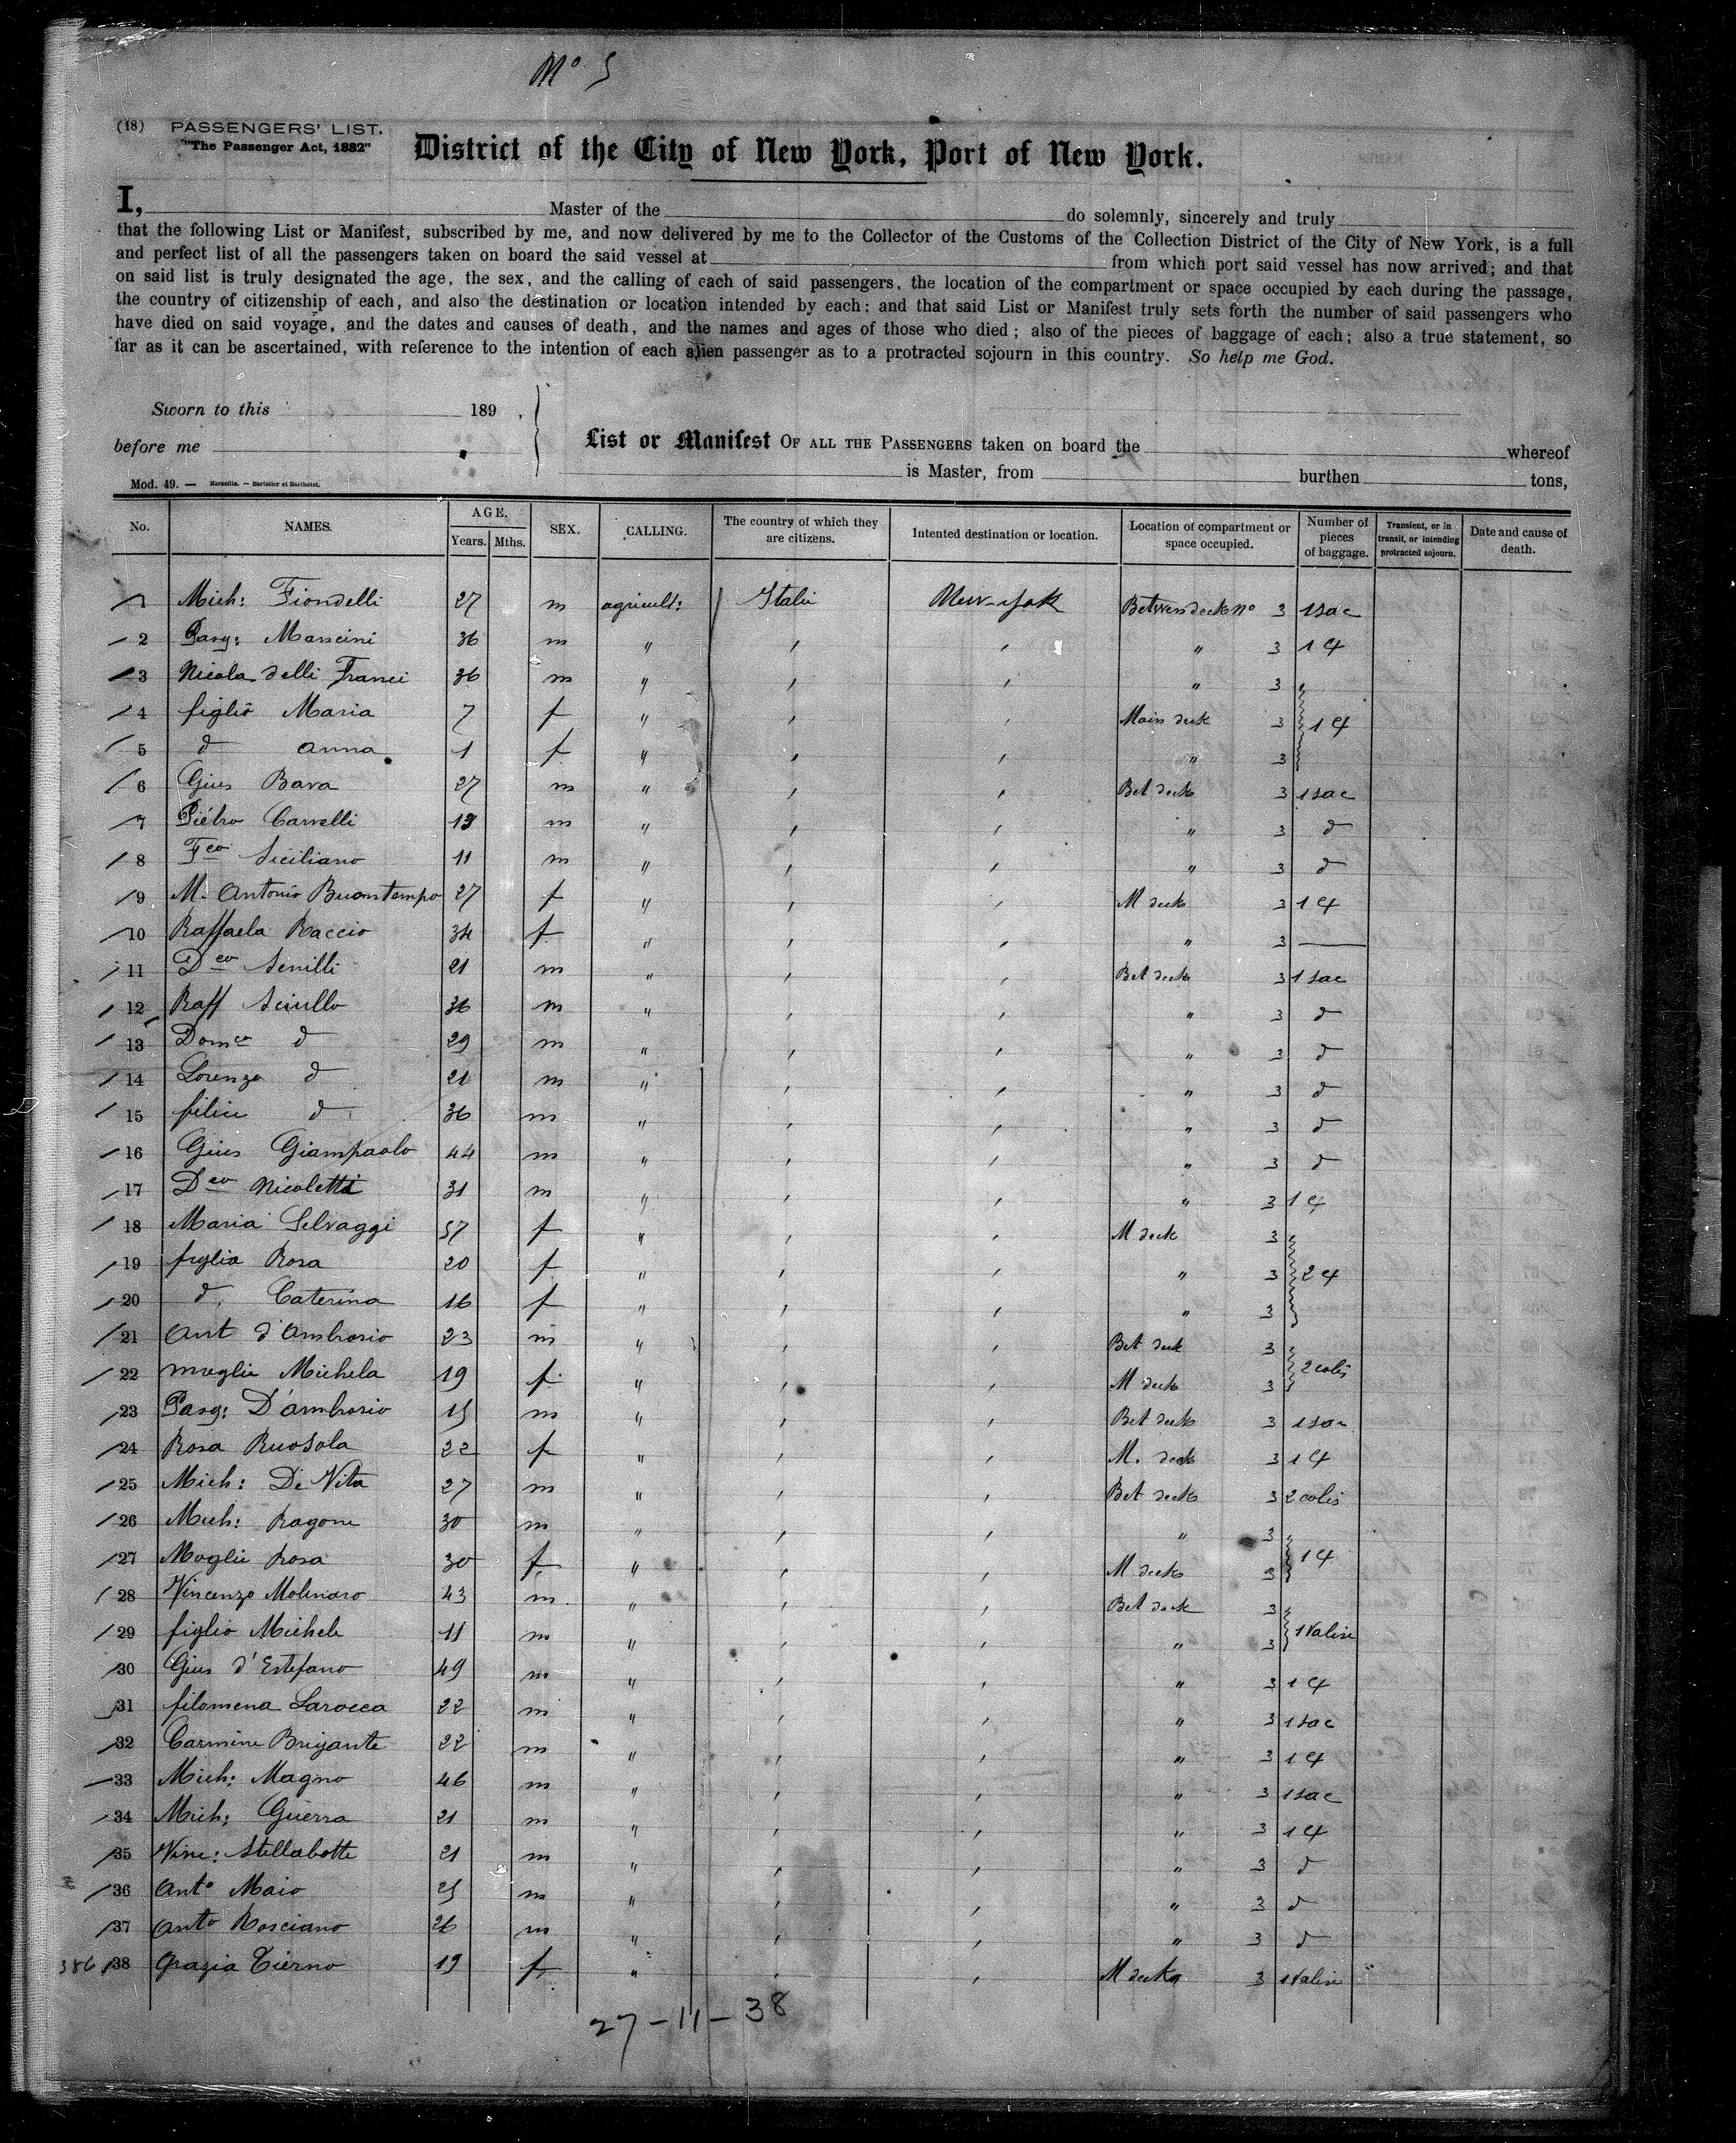 Mo 5
(18) PASSENGERS' LIST.
"The Passenger Act, 1882"
District of the City of New York, Port of New York.
I, Master of the do solemnly, sincerely and truly
that the following List or Manifest, subscribed by me, and now delivered by me to the Collector of the Customs of the Collection District of the City of New York, is a full
and perfect list of all the passengers taken on board the said vessel at from which port said vessel has now arrived; and that
on said list is truly designated the age, the sex, and the calling of each of said passengers, the location of the compartment or space occupied by each during the passage,
the country of citizenship of each, and also the destination or location intended by each; and that said List or Manifest truly sets forth the number of said passengers who
have died on said voyage, and the dates and causes of death, and the names and ages of those who died; also of the pieces of baggage of each; also a true statement, so
far as it can be ascertained, with reference to the intention of each alien passenger as to a protracted sojourn in this country. So help me God.
Sworn to this 189 ,
before me
List or Manifest OF ALL THE PASSENGERS taken on board the whereof
is Master, from burthen tons,
Mod. 49. — Marseille. — Barlatier et Barthelet.
No. NAMES. AGE. Years. Mths. SEX. CALLING. The country of which they are citizens. Intented destination or location. Location of compartment or space occupied. Number of pieces of baggage. Transient, or in transit, or intending protracted sojourn. Date and cause of death.
1 Mich: Fiondelli 27 m agricult: Italie New-york Between deck no 3 1 sac
2 Pasq: Mancini 36 m " " " " 3 1 cf
3 Nicola delli Franci 36 m " " " " 3
4 figlio Maria 7 f " " " Main deck 3 1 cf
5 d anna 1 f " " " " 3
6 Gius Bava 27 m " " " Bet deck 3 1 sac
7 Piétro Carrelli 19 m " " " " 3 d
8 Fco Siciliano 11 m " " " " 3 d
9 M. Antonio Buontempo 27 f " " " M deck 3 1 cf
10 Raffaela Raccio 34 f " " " " 3 —
11 Dco Senilli 21 m " " " Bet deck 3 1 sac
12 Raff Sciullo 36 m " " " " 3 d
13 Domco d 29 m " " " " 3 d
14 Lorenzo d 21 m " " " " 3 d
15 felice d 36 m " " " " 3 d
16 Gius Giampaolo 44 m " " " " 3 d
17 Dco Nicoletti 31 m " " " " 3 1 cf
18 Maria Selvaggi 57 f " " " M deck 3
19 figlia Rosa 20 f " " " " 3 2 cf
20 d. Caterina 16 f " " " " 3
21 Ant d'Ambrosio 23 m " " " Bet deck 3
22 moglie Michela 19 f " " " M deck 3 2 colis
23 Pasq: D'ambrosio 15 m " " " Bet deck 3 1 sac
24 Rosa Ruosola 22 f " " " M. deck 3 1 cf
25 Mich: De Vita 27 m " " " Bet deck 3 2 colis
26 Mich: Ragone 30 m " " " " 3
27 Moglie Rosa 30 f " " " M deck 3 1 cf
28 Vincenzo Molinaro 43 m " " " Bet deck 3
29 figlio Michele 11 m " " " " 3 1 Valise
30 Gius d'Estefano 49 m " " " " 3 1 cf
31 filomena Larocca 22 m " " " " 3 1 sac
32 Carmine Brigante 22 m " " " " 3 1 cf
33 Mich: Magno 46 m " " " " 3 1 sac
34 Mich: Guerra 21 m " " " " 3 1 cf
35 Vinc: Stellabotte 21 m " " " " 3 d
36 Anto Maio 25 m " " " " 3 d
37 Anto Rosciano 26 m " " " " 3 d
386 38 Grazia Tierno 19 f " " " M deck 3 1 Valise
27-11-38